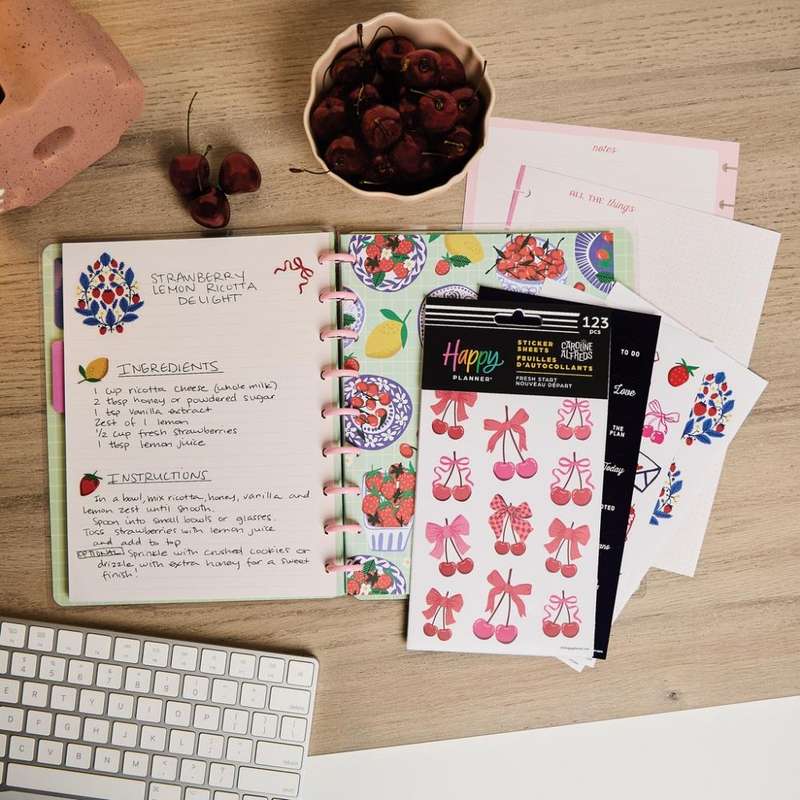 STRAWBERRY
LEMON RICOTTA
DELIGHT
INGREDIENTS
1 cup ricotta cheese (whole milk)
2 tbsp honey or powdered sugar
1 tsp vanilla extract
Zest of 1 lemon
1/2 cup fresh strawberries
1 tbsp lemon juice
INSTRUCTIONS
In a bowl, mix ricotta, honey, vanilla and
lemon zest until smooth.
Spoon into small bowls or glasses.
Toss strawberries with lemon juice
and add to top
OPTIONAL: Sprinkle with crushed cookies or
drizzle with extra honey for a sweet
finish!
notes
ALL THE things
123
pcs
Happy
PLANNER®
STICKER
SHEETS
FEUILLES
D'AUTOCOLLANTS
FRESH START
NOUVEAU DÉPART
CAROLINE
ALFREDS
TO DO
Love
THE
PLAN
Today